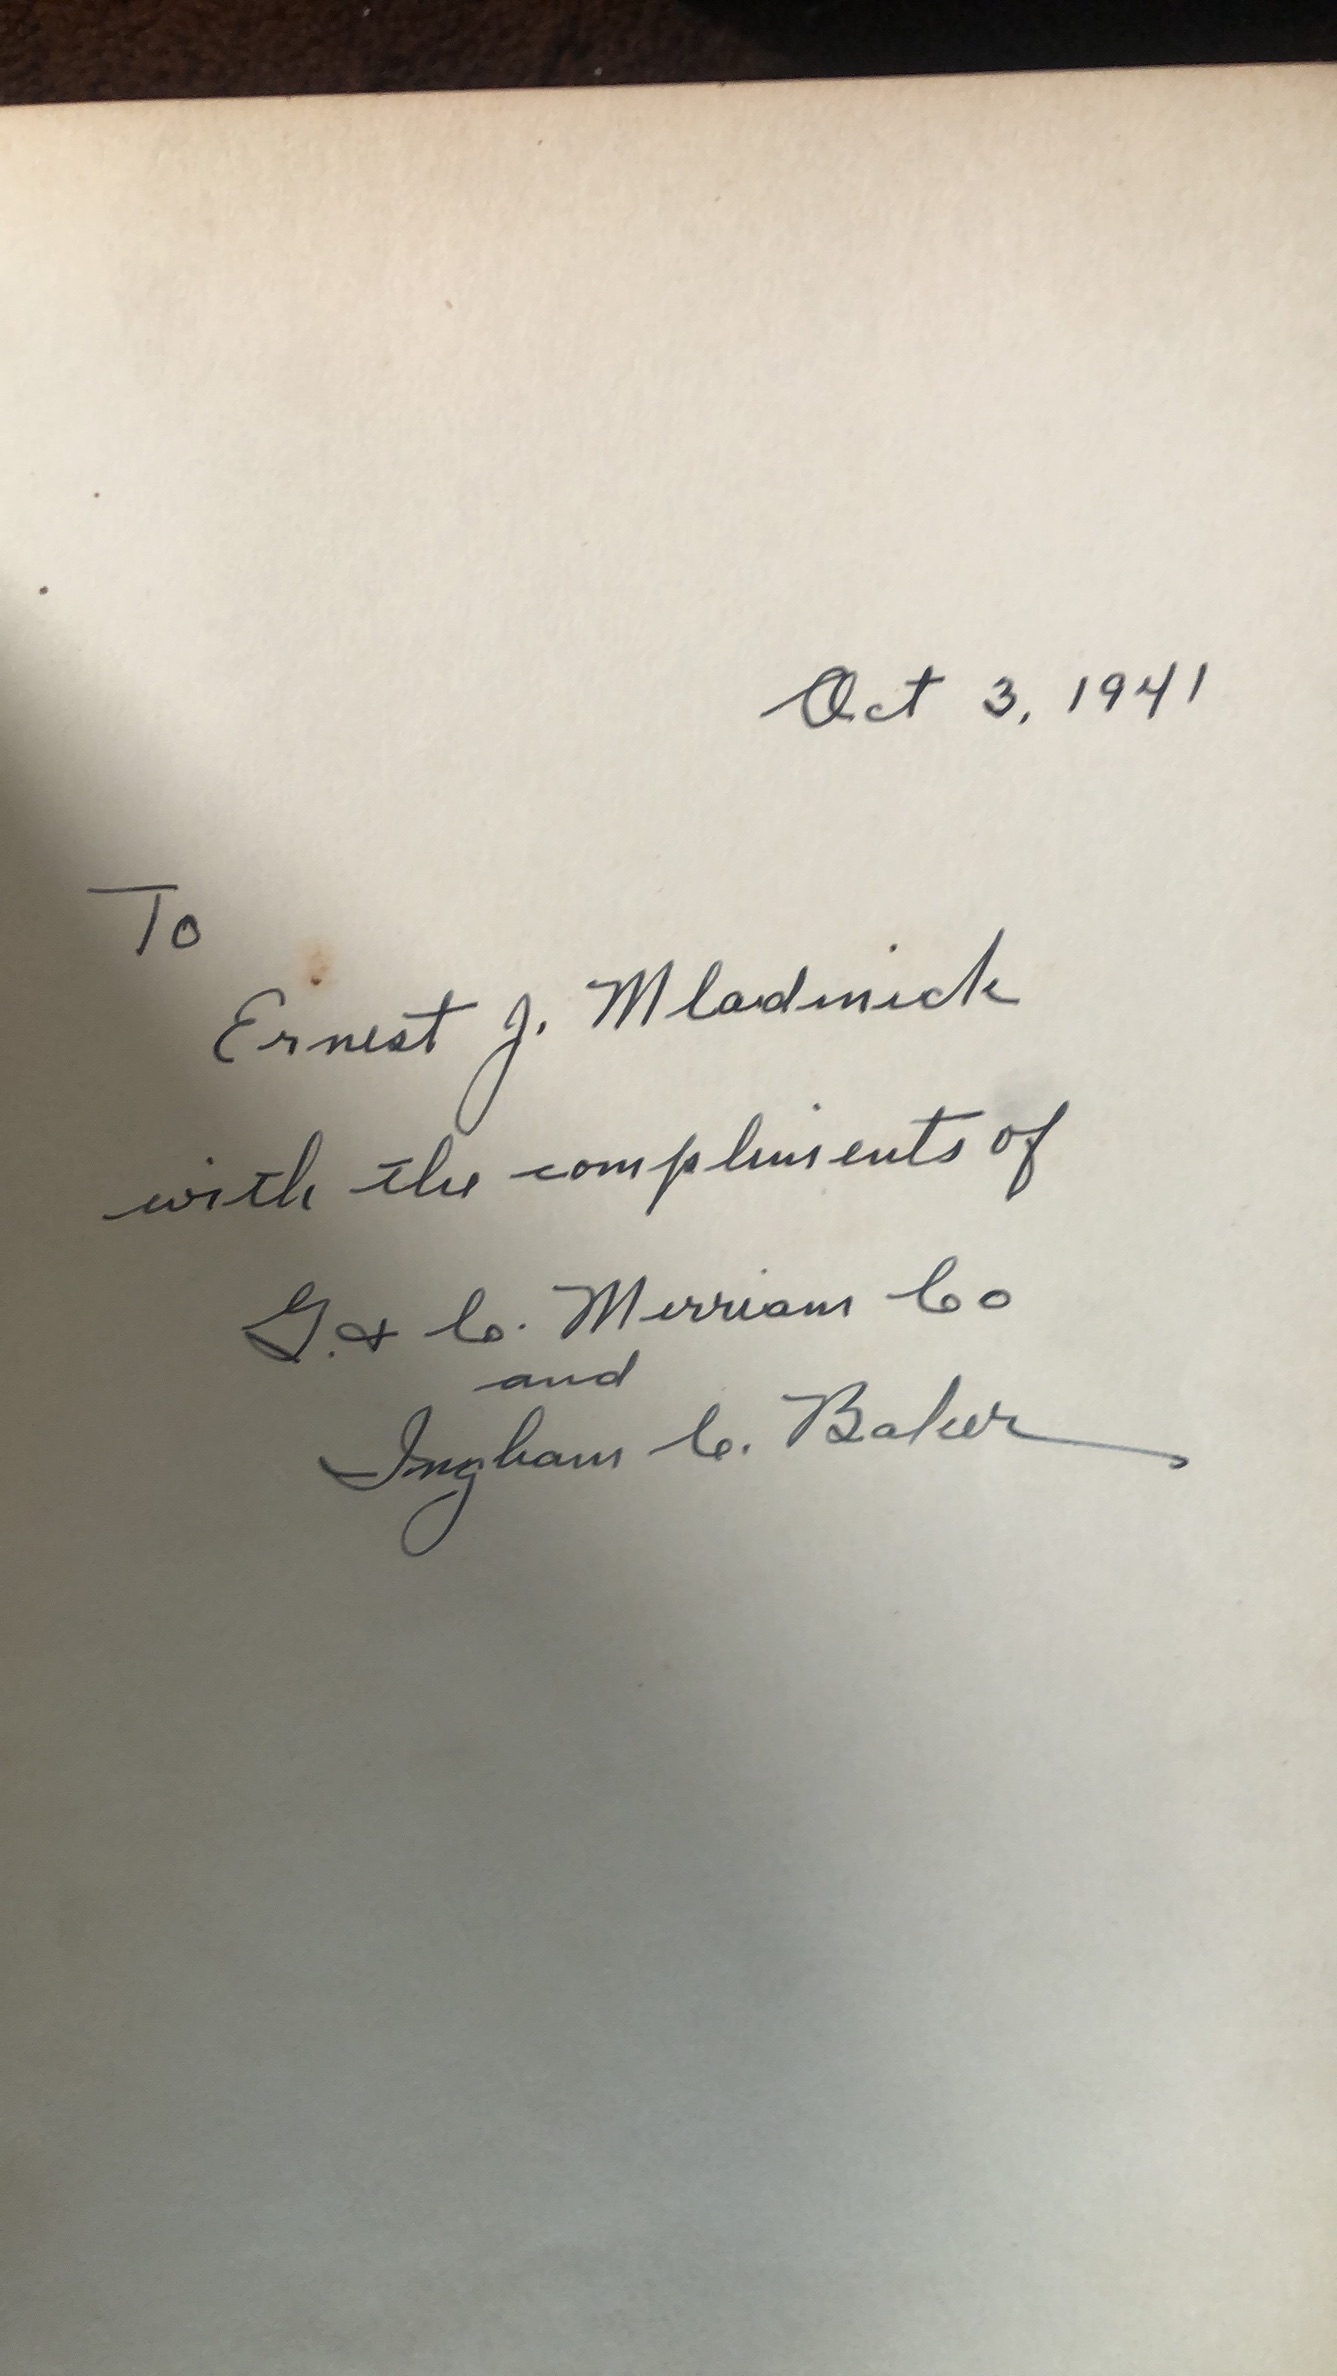 Oct 3, 1941
To
Ernest J. Mladinick
with the compliments of
G. & C. Merriam Co
and
Ingham C. Baker